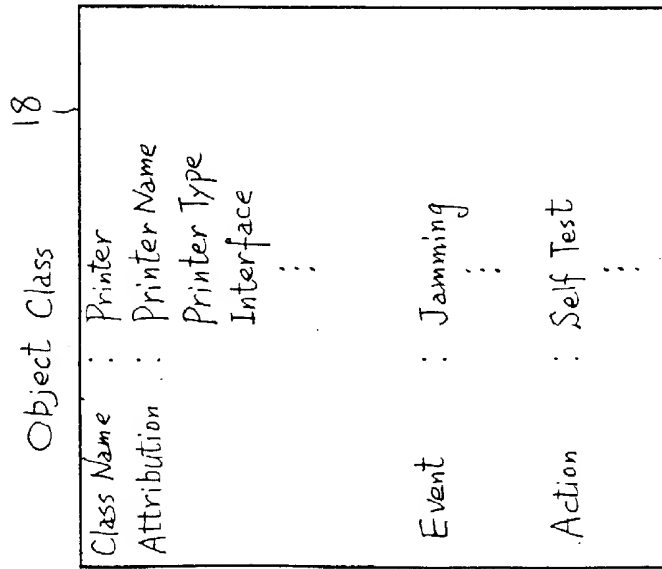 Object Class
18
Class Name : Printer
Attribution : Printer Name
Printer Type
Interface
:
Event : Jamming
:
Action : Self Test
: